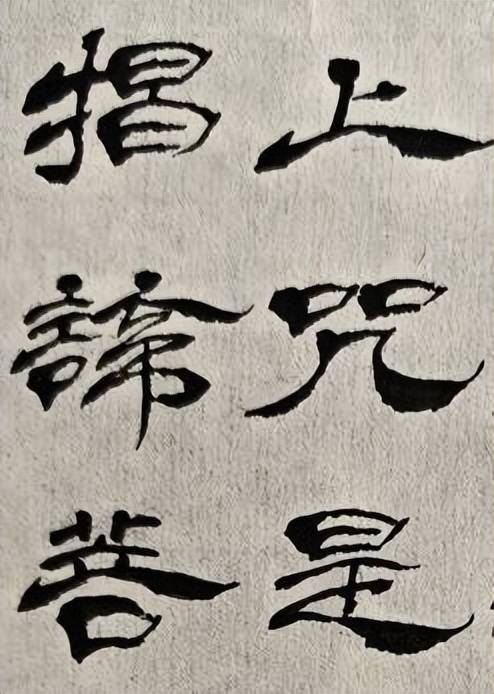 上咒是
揭諦菩